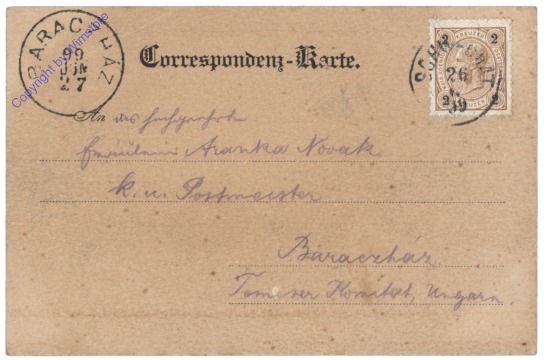 BARACHÁZ
99
JUN
27
Copyright by Winstble
Correspondenz-Karte.
2 KREUZER 2
26
99
2 2
An das hochgeehrte
Fräulein Aranka Novak
k. u. Postmeister
Báraczház
Temeser Komitat, Ungarn